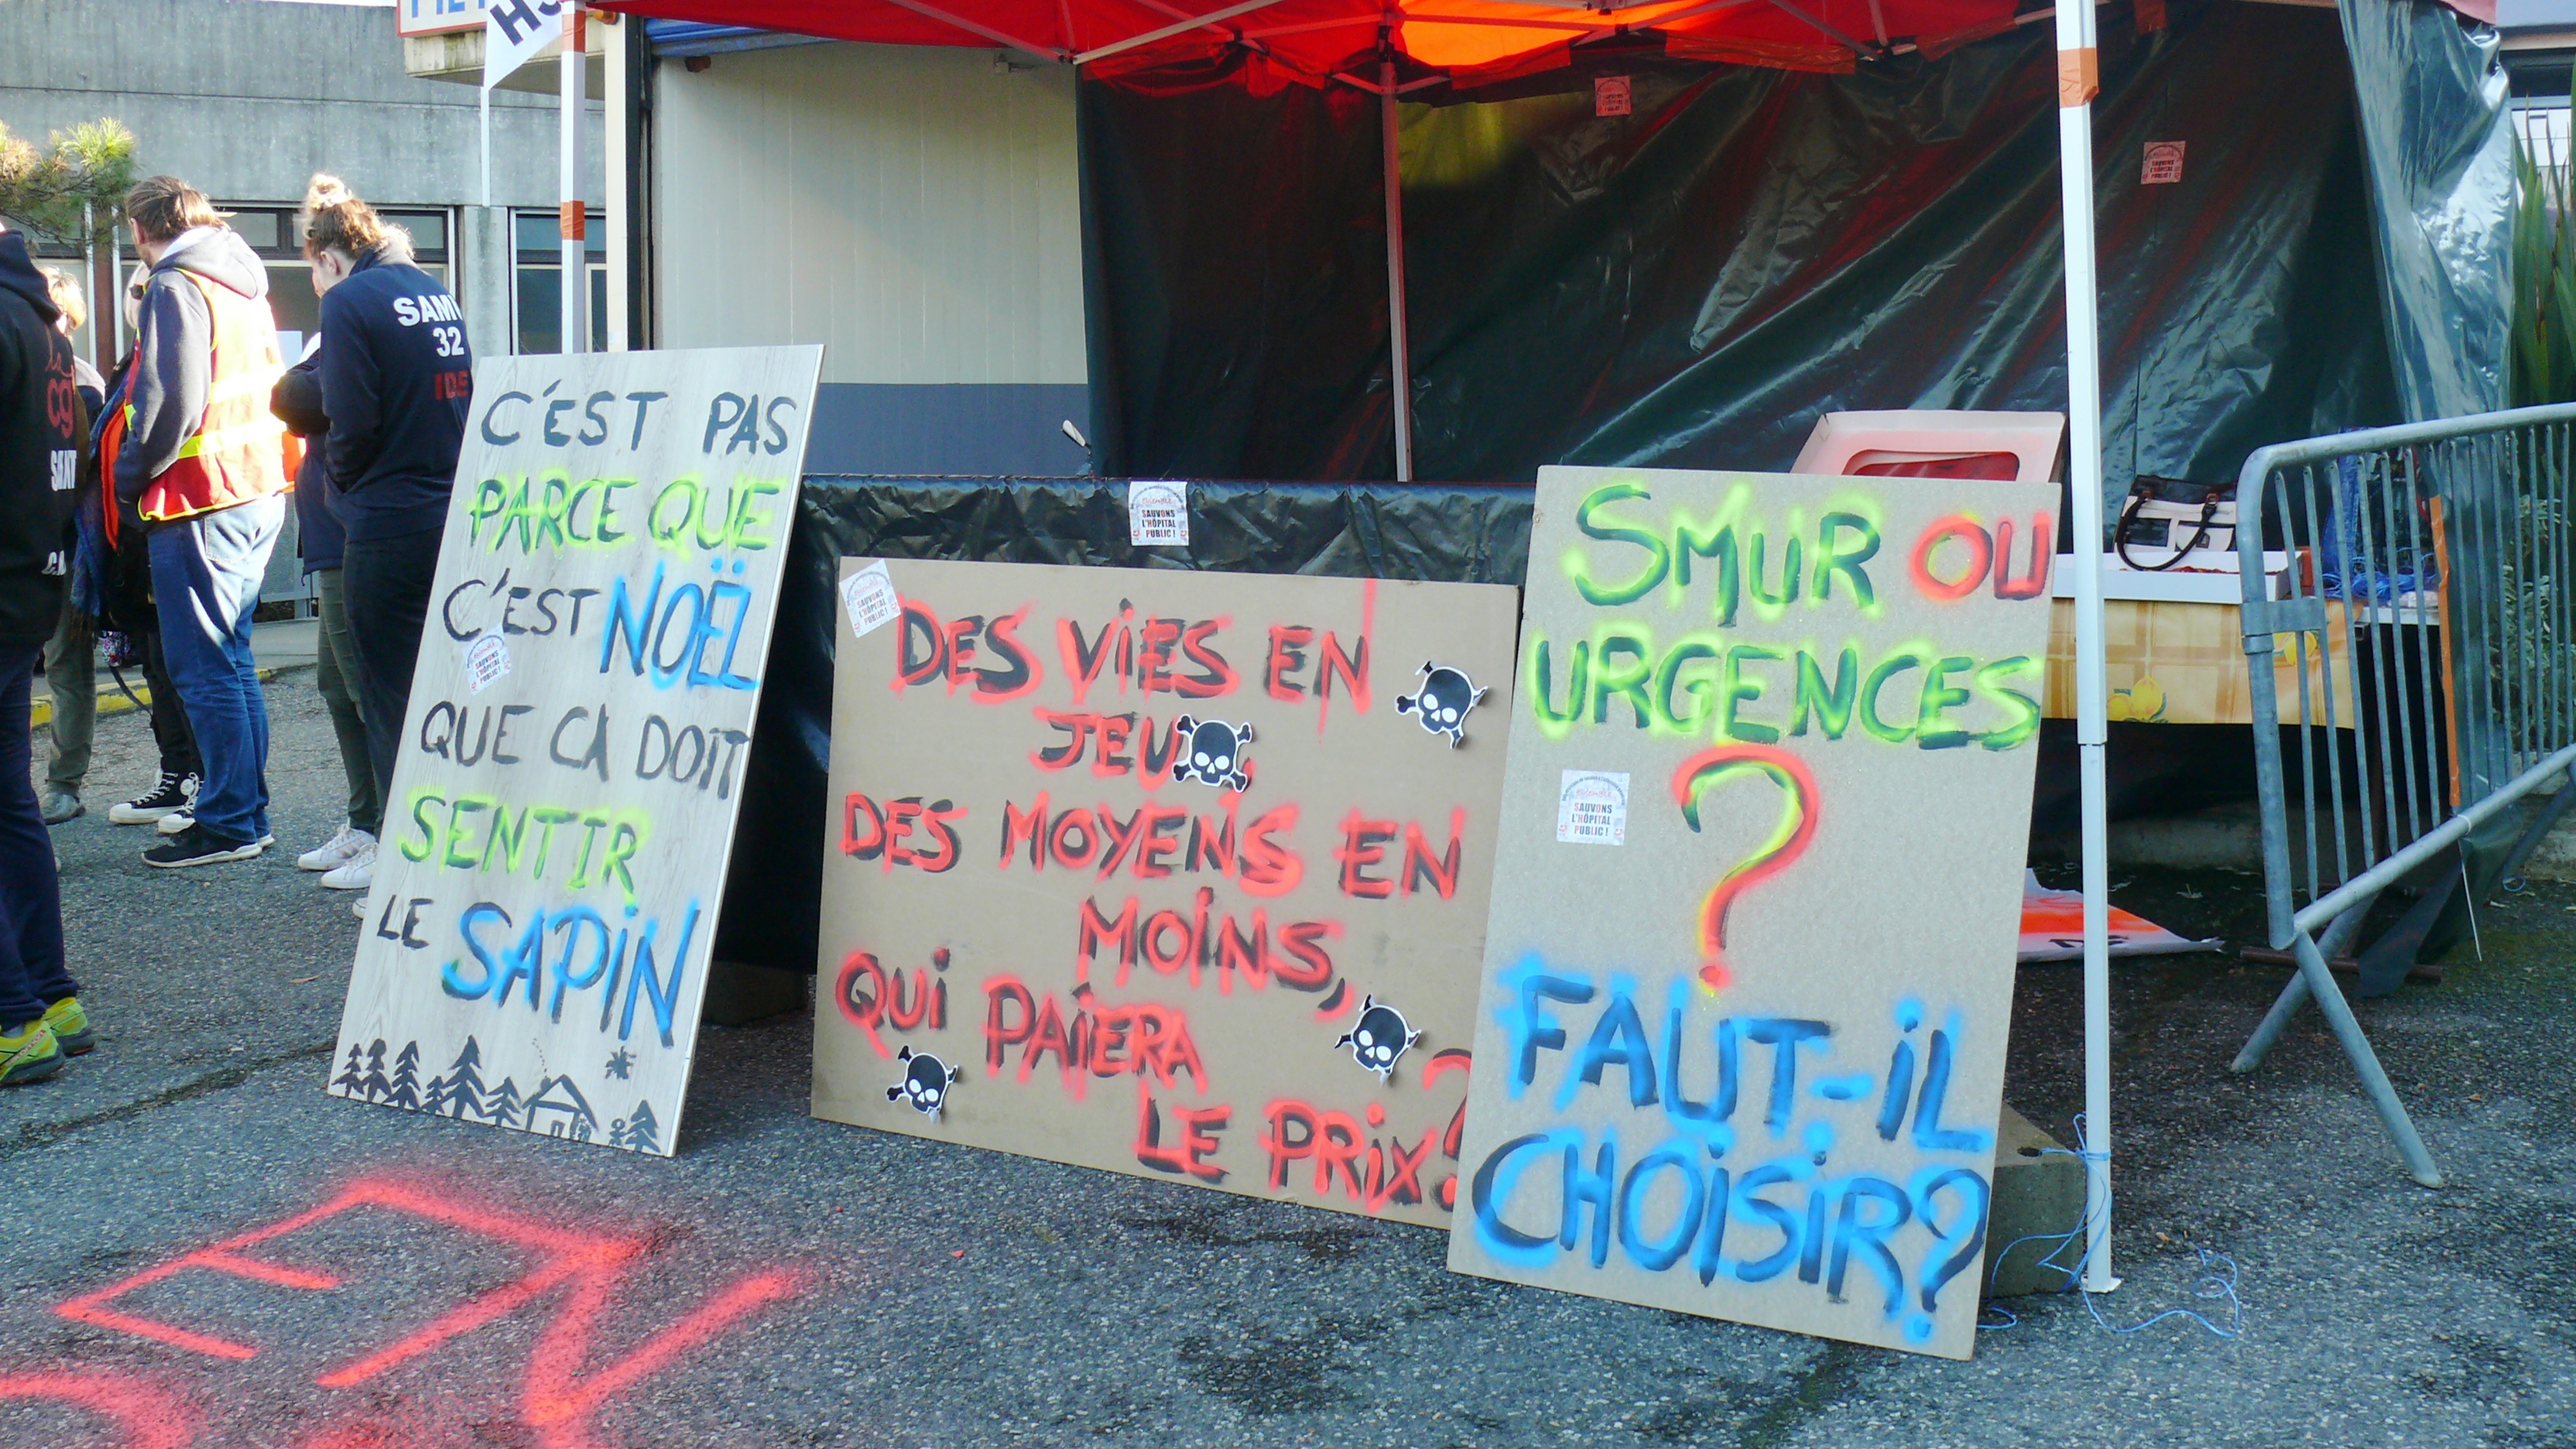 SAMU
32
IDE
cgt
C'EST PAS
PARCE QUE
C'EST NOËL
QUE CA DOIT
SENTIR
LE SAPiN
DES ViES EN
JEU,
DES MOYENS EN
MOiNS,
QUi PAiERA
LE PRiX?
SMUR OU
URGENCES
?
FAUT-iL
CHOiSiR?
SAUVONS
L'HÔPITAL
PUBLIC !
SAUVONS
L'HÔPITAL
PUBLIC !
SAUVONS
L'HÔPITAL
PUBLIC !
SAUVONS
L'HÔPITAL
PUBLIC !
SAUVONS
L'HÔPITAL
PUBLIC !
EN